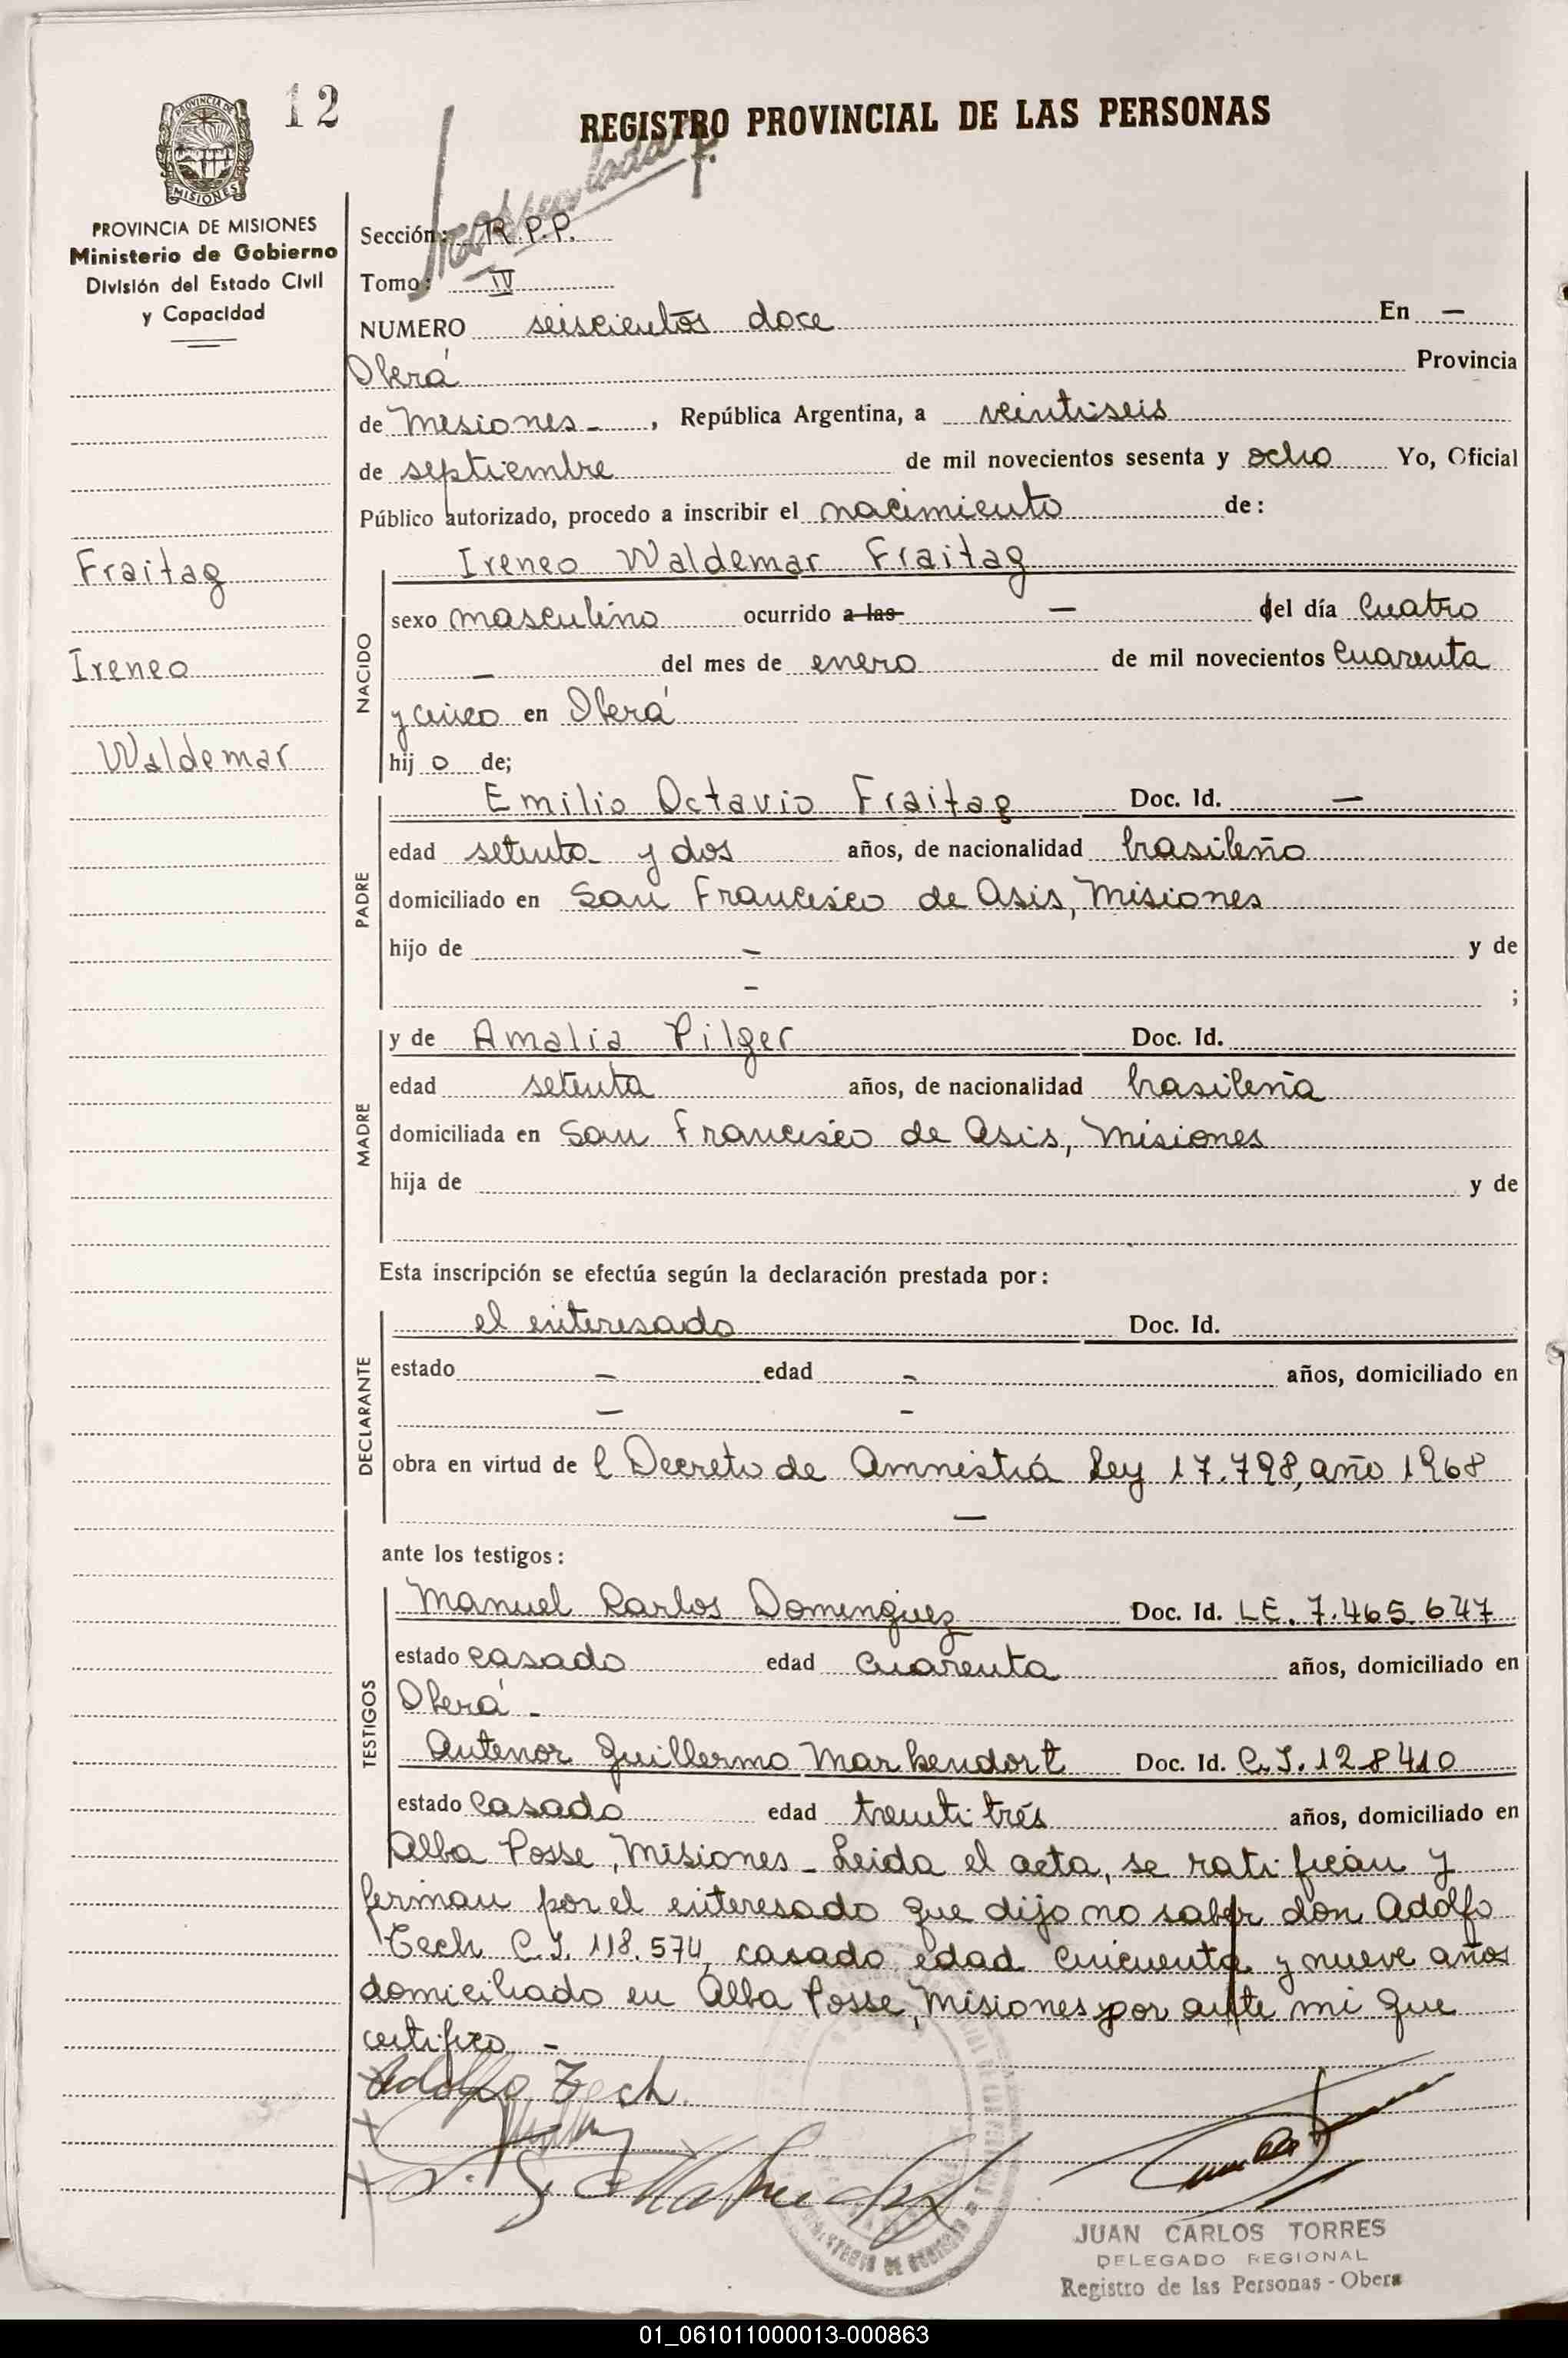 12
REGISTRO PROVINCIAL DE LAS PERSONAS
PROVINCIA DE
MISIONES
PROVINCIA DE MISIONES
Ministerio de Gobierno
División del Estado Civil
y Capacidad
Fraitag
Ireneo
Waldemar
Sección: R.P.P.
Tomo: IV
NUMERO seiscientos doce En —
Oberá Provincia
de Misiones - , República Argentina, a veintiseis
de septiembre de mil novecientos sesenta y ocho Yo, Oficial
Público autorizado, procedo a inscribir el nacimiento de:
Ireneo Waldemar Fraitag
NACIDO
sexo masculino ocurrido a las — del día cuatro
— del mes de enero de mil novecientos cuarenta
y cinco en Oberá
hij o de;
PADRE
Emilio Octavio Fraitag Doc. Id. —
edad setenta y dos años, de nacionalidad brasileño
domiciliado en San Francisco de Asis, Misiones
hijo de — y de
— ;
MADRE
y de Amalia Pilger Doc. Id.
edad setenta años, de nacionalidad brasileña
domiciliada en San Francisco de Asis, Misiones
hija de y de
Esta inscripción se efectúa según la declaración prestada por:
DECLARANTE
el interesado Doc. Id.
estado — edad — años, domiciliado en
— —
obra en virtud de l Decreto de Amnistiá Ley 17.798, año 1968
—
ante los testigos:
TESTIGOS
Manuel Carlos Dominguez Doc. Id. L.E. 7.465.647
estado casado edad cuarenta años, domiciliado en
Oberá -
Antenor Guillermo Markendort Doc. Id. C.I. 128410
estado casado edad treinti trés años, domiciliado en
Alba Posse, Misiones - Leida el acta, se ratifican y
firman por el interesado que dijo no saber don Adolfo
Tech C.I. 118.574, casado, edad cincuenta y nueve años
domiciliado en Alba Posse, Misiones por ante mi que
certifico -
Adolfo Zech.
JUAN CARLOS TORRES
DELEGADO REGIONAL
Registro de las Personas - Obera
01_061011000013-000863